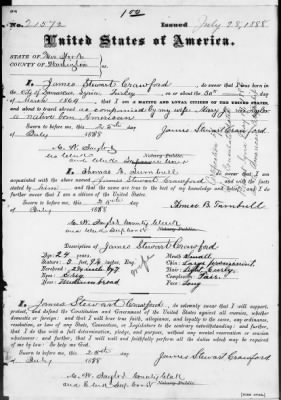 No. 21572 Issued July 28, 1888.
United States of America.
STATE OF New York
COUNTY OF Washington
I, James Stewart Crawford, do swear that I was born in the
City of Damascus Syria, Turkey on or about the 30th day of
March 1864, that I am a NATIVE AND LOYAL CITIZEN OF THE UNITED STATES,
and about to travel abroad as accompanied by my wife Mary
a native born American
Sworn to before me, this 25th day James Stewart Crawford
of July 1888
C. W. Taylor
Notary Public.
I, Thomas B. Turnbull do swear that I am
acquainted with the above named James Stewart Crawford, and with the facts
stated by him and that the same are true to the best of my knowledge and belief. I do
further swear that I am a citizen of the United States.
Sworn to before me, this 25th day Thomas B. Turnbull
of July 1888
C. W. Taylor County Clerk
Notary Public.
Description of James Stewart Crawford
Age: 24 years. Mouth: Small
Stature: 5 feet, Eng. Chin:
Forehead: Hair: Light Curly.
Eyes: Grey Complexion: Fair.
Nose: Medium broad Face: Long
I, James Stewart Crawford, do solemnly swear that I will support,
protect, and defend the Constitution and Government of the United States against all enemies, whether
domestic or foreign; and that I will bear true faith, allegiance, and loyalty to the same, any ordinance,
resolution, or law of any State, Convention, or Legislature to the contrary notwithstanding; and further,
that I do this with a full determination, pledge, and purpose, without any mental reservation or evasion
whatsoever; and further, that I will well and faithfully perform all the duties which may be required
of me by law: So help me God.
Sworn to before me, this 25th day James Stewart Crawford
of July 1888
C. W. Taylor County Clerk
Notary Public.